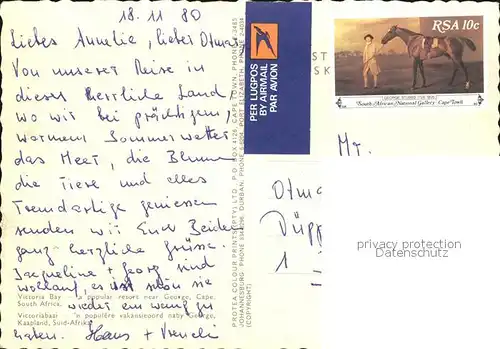 18.11 80
Liebes Annelie, lieber Otmar
Von unserer Reise in
dieses herrliche Land
wo wir bei prächtigem,
warmem Sommerwetter
das Meer, die Blumen
die Tiere und alles
Fremdartige geniessen
senden wir Euch Beiden
ganz herzliche Grüsse.
Jacqueline + Georg sind
wohlauf, es ist schön sie
Victoria Bay — a popular resort near George, Cape,
South Africa.
wieder ein wenig zu
Victoriabaai — 'n populêre vakansieoord naby George,
Kaapland, Suid-Afrika
haben. Hans + Vreneli
PROTEA COLOUR PRINTS (PTY) LTD. P.O. BOX 4126, CAPE TOWN, PHONE
JOHANNESBURG, PHONE DURBAN, PHONE PORT ELIZABETH, PHONE 2-4034
(COPYRIGHT)
PER LUGPOS
BY AIRMAIL
PAR AVION
RSA 10c
South African National Gallery, Cape Town
ST
SK
Mr.
Otma
Düpp
1
privacy protection
Datenschutz